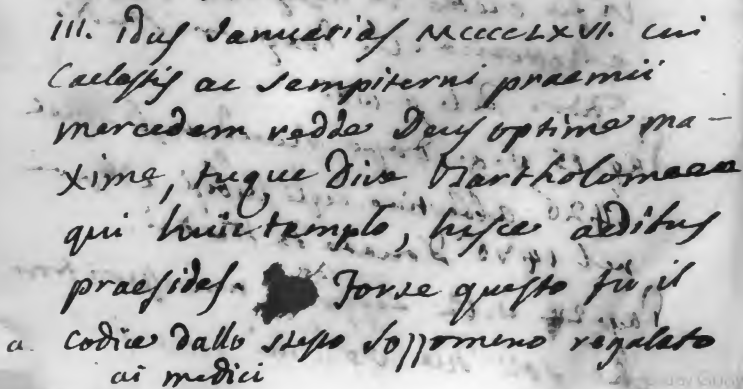 iii. idus Januarias MCCCCLXVI. cui
Caelestis ac sempiterni praemii
mercedem redde Deus optime ma-
xime, tuque Dive Bartholomaee
qui huic templo, hisce aedibus
praesides. Forse questo fù il
a. codice dallo stesso Sozomeno regalato
ai medici